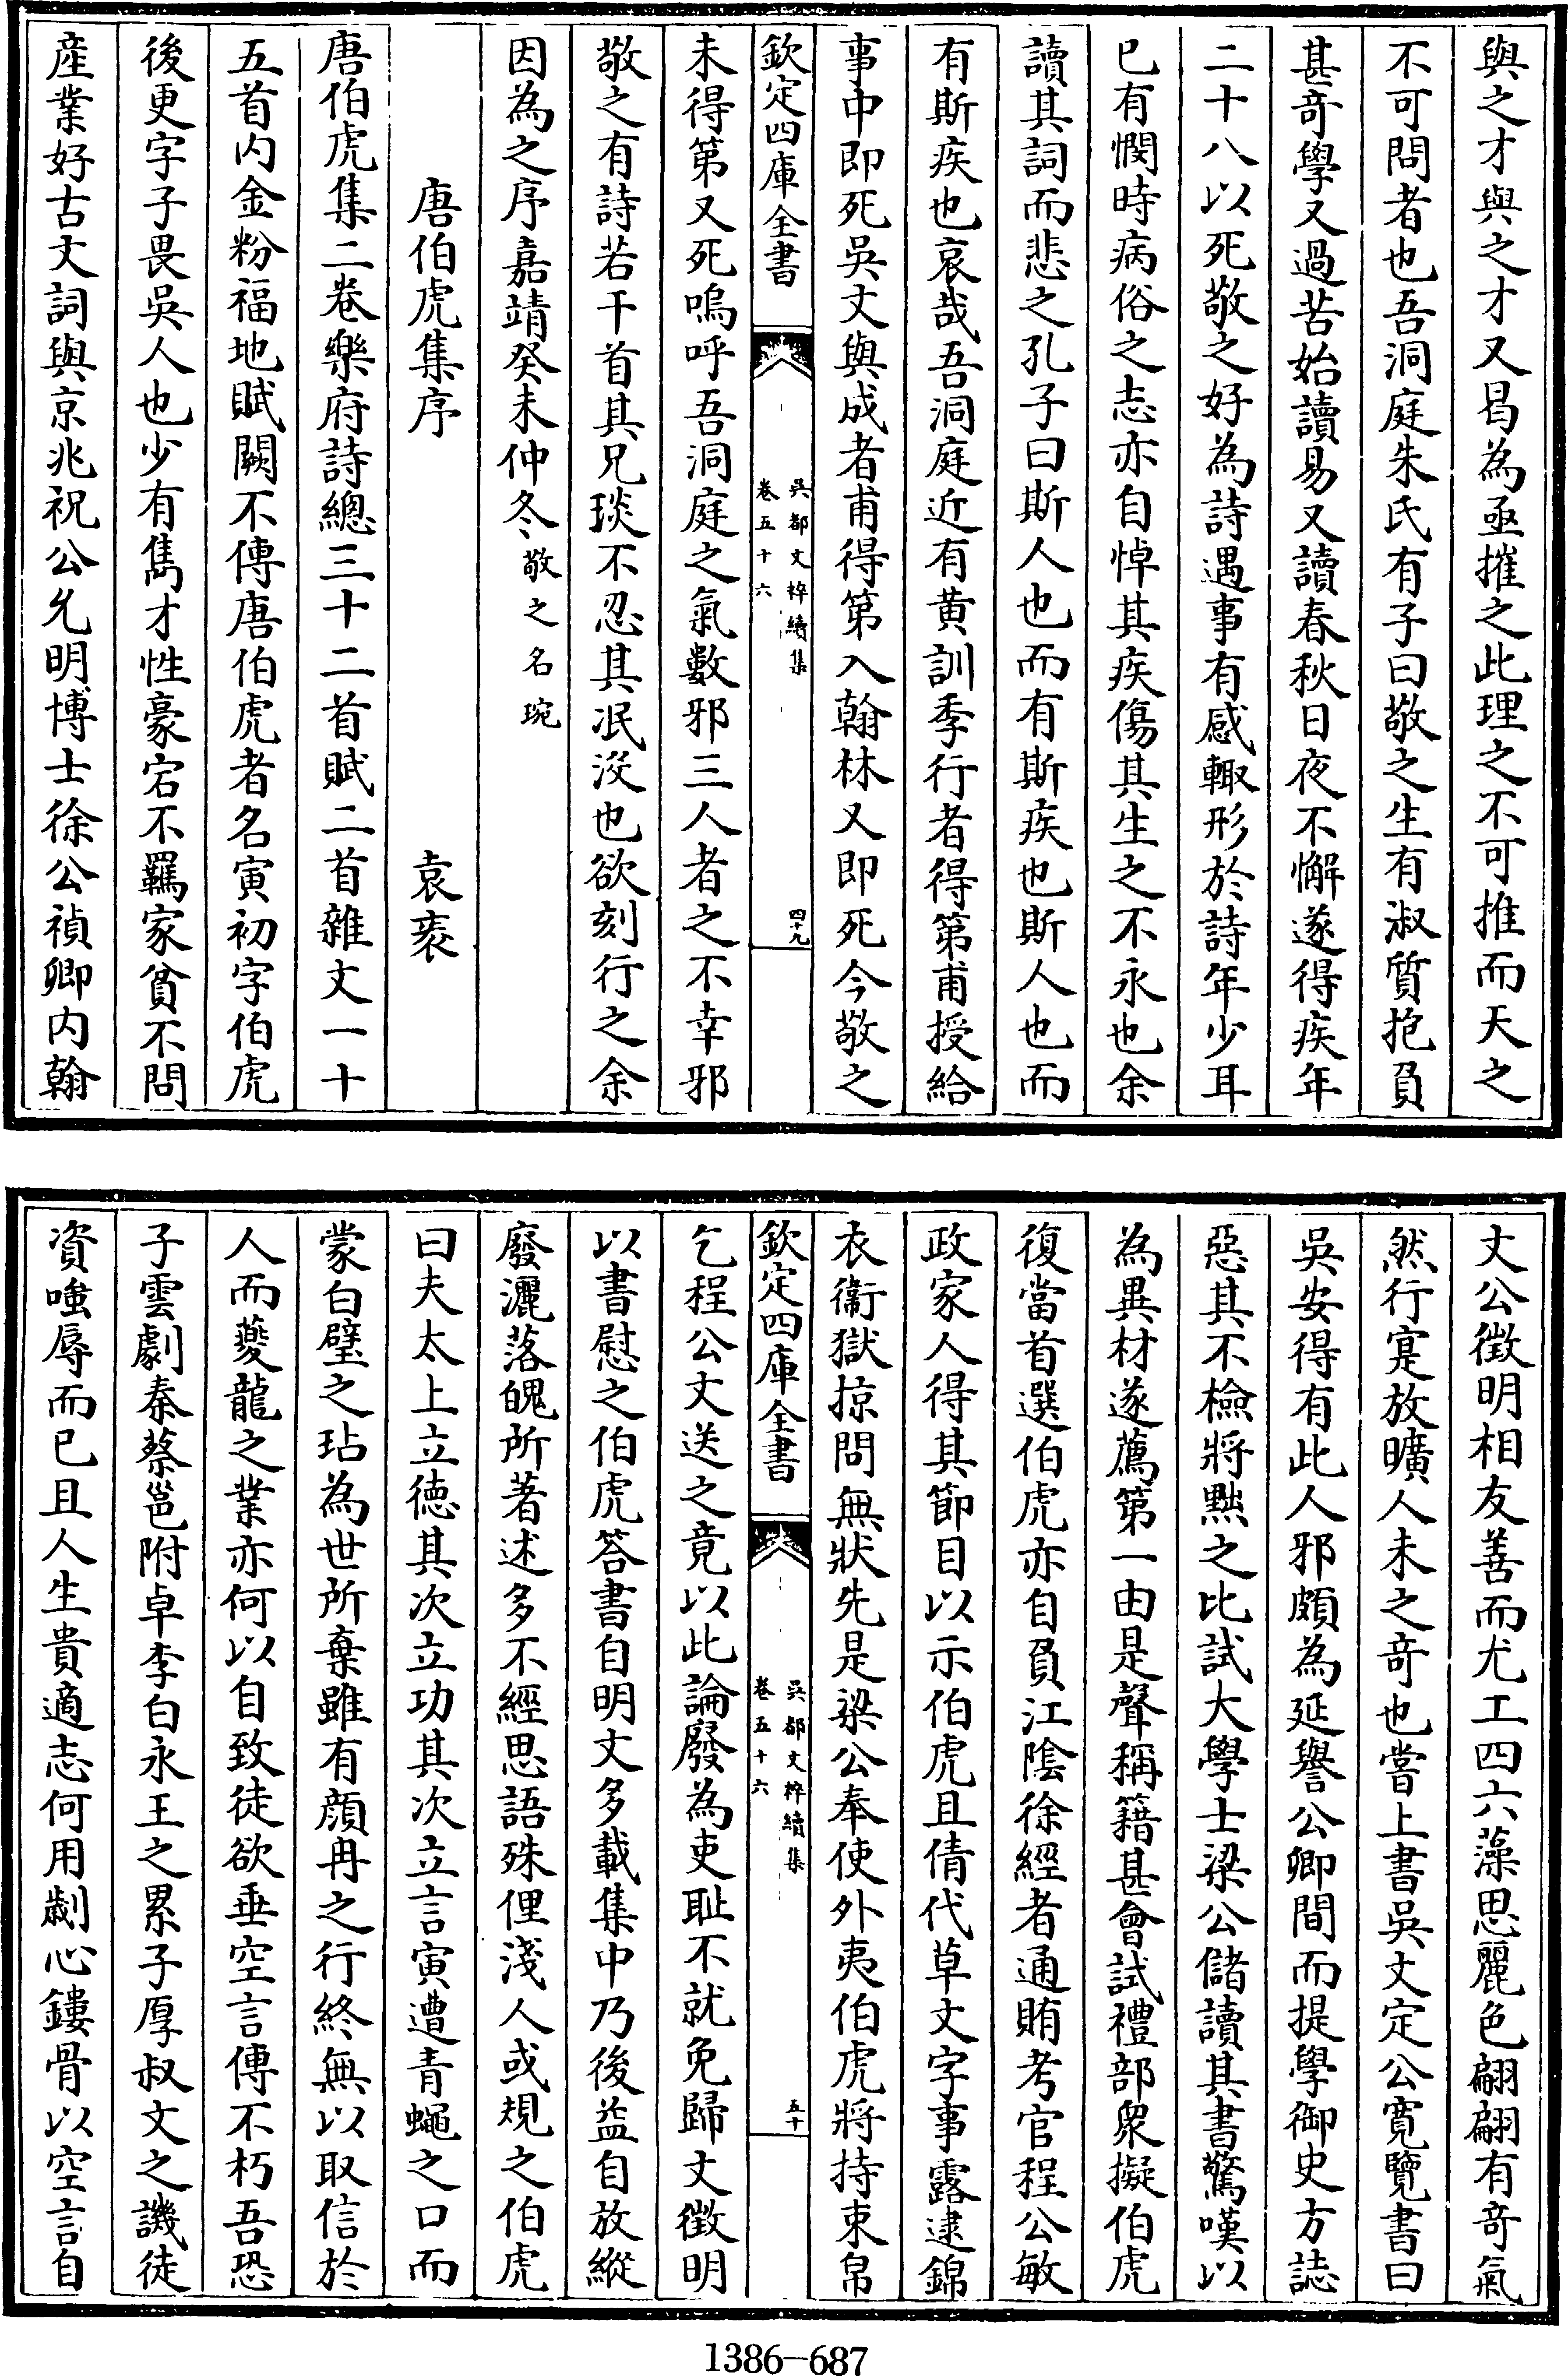 與之才與之才又曷為亟摧之此理之不可推而天之
不可問者也吾洞庭朱氏有子曰敬之生有淑質抱負
甚奇學又過苦始讀易又讀春秋日夜不懈遂得疾年
二十八以死敬之好為詩遇事有感輙形於詩年少耳
已有憫時病俗之志亦自悼其疾傷其生之不永也余
讀其詞而悲之孔子曰斯人也而有斯疾也斯人也而
有斯疾也哀哉吾洞庭近有黄訓季行者得第甫授給
事中即死吳文與成者甫得第入翰林又即死今敬之
欽定四庫全書
吳都文粹續集
卷五十六
四十九
未得第又死嗚呼吾洞庭之氣數邪三人者之不幸邪
敬之有詩若干首其兄琰不忍其泯沒也欲刻行之余
因為之序嘉靖癸未仲冬敬之名琬
唐伯虎集序
袁袠
唐伯虎集二卷樂府詩總三十二首賦二首雜文一十
五首内金粉福地賦闕不傳唐伯虎者名寅初字伯虎
後更字子畏吳人也少有雋才性豪宕不羈家貧不問
產業好古文詞與京兆祝公允明博士徐公禎卿内翰
文公徵明相友善而尤工四六藻思麗色翩翩有奇氣
然行寔放曠人未之奇也嘗上書吳文定公寛覽書曰
吳安得有此人邪頗為延譽公卿間而提學御史方誌
惡其不檢將黜之比試大學士梁公儲讀其書驚嘆以
為異材遂薦第一由是聲稱籍甚會試禮部衆擬伯虎
復當首選伯虎亦自負江陰徐經者通賄考官程公敏
政家人得其節目以示伯虎且倩代草文字事露逮錦
衣衞獄掠問無狀先是梁公奉使外夷伯虎將持束帛
欽定四庫全書
吳都文粹續集
卷五十六
五十
乞程公文送之竟以此論廢為吏耻不就免歸文徵明
以書慰之伯虎答書自明文多載集中乃後益自放縱
廢灑落魄所著述多不經思語殊俚淺人或規之伯虎
曰夫太上立德其次立功其次立言寅遭青蠅之口而
蒙白璧之玷為世所棄雖有顔冉之行終無以取信於
人而夔龍之業亦何以自致徒欲垂空言傳不朽吾恐
子雲劇秦蔡邕附卓李白永王之累子厚叔文之譏徒
資嗤辱而已且人生貴適志何用劌心鏤骨以空言自
1386-687